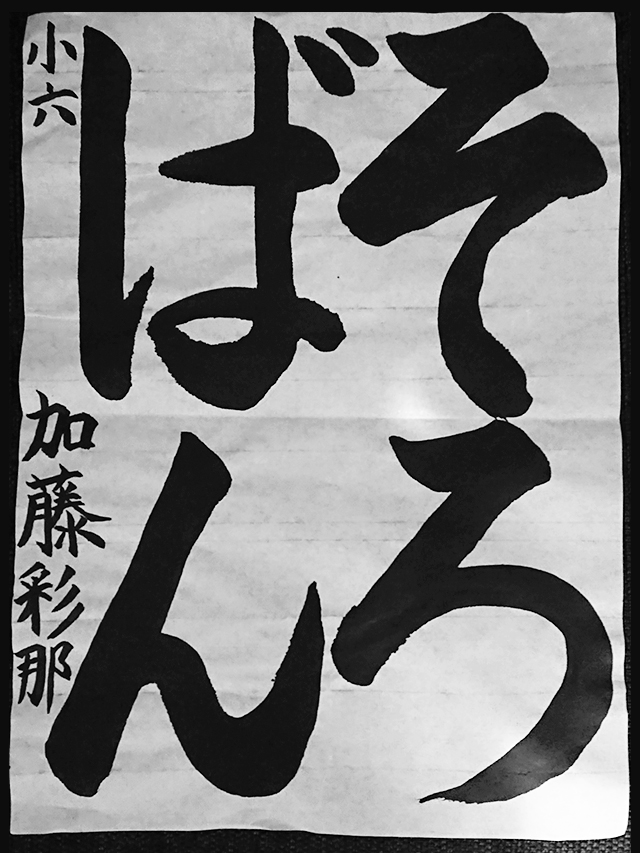 そろ
ばん
小六 加藤彩那